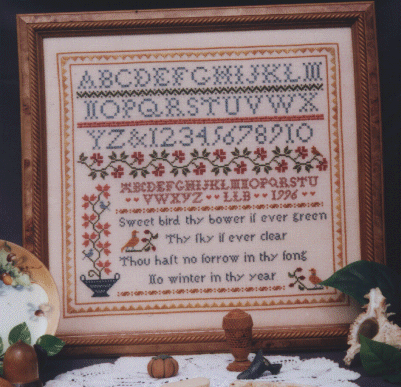 ABCDEFGHIJKLM
NOPQRSTUVWX
YZ&12345678910
ABCDEFGHIJKLMNOPQRSTU
VWXYZ LLB 1996
Sweet bird thy bower iſ ever green
Thy ſky iſ ever clear
Thou haſt no ſorrow in thy ſong
No winter in thy year